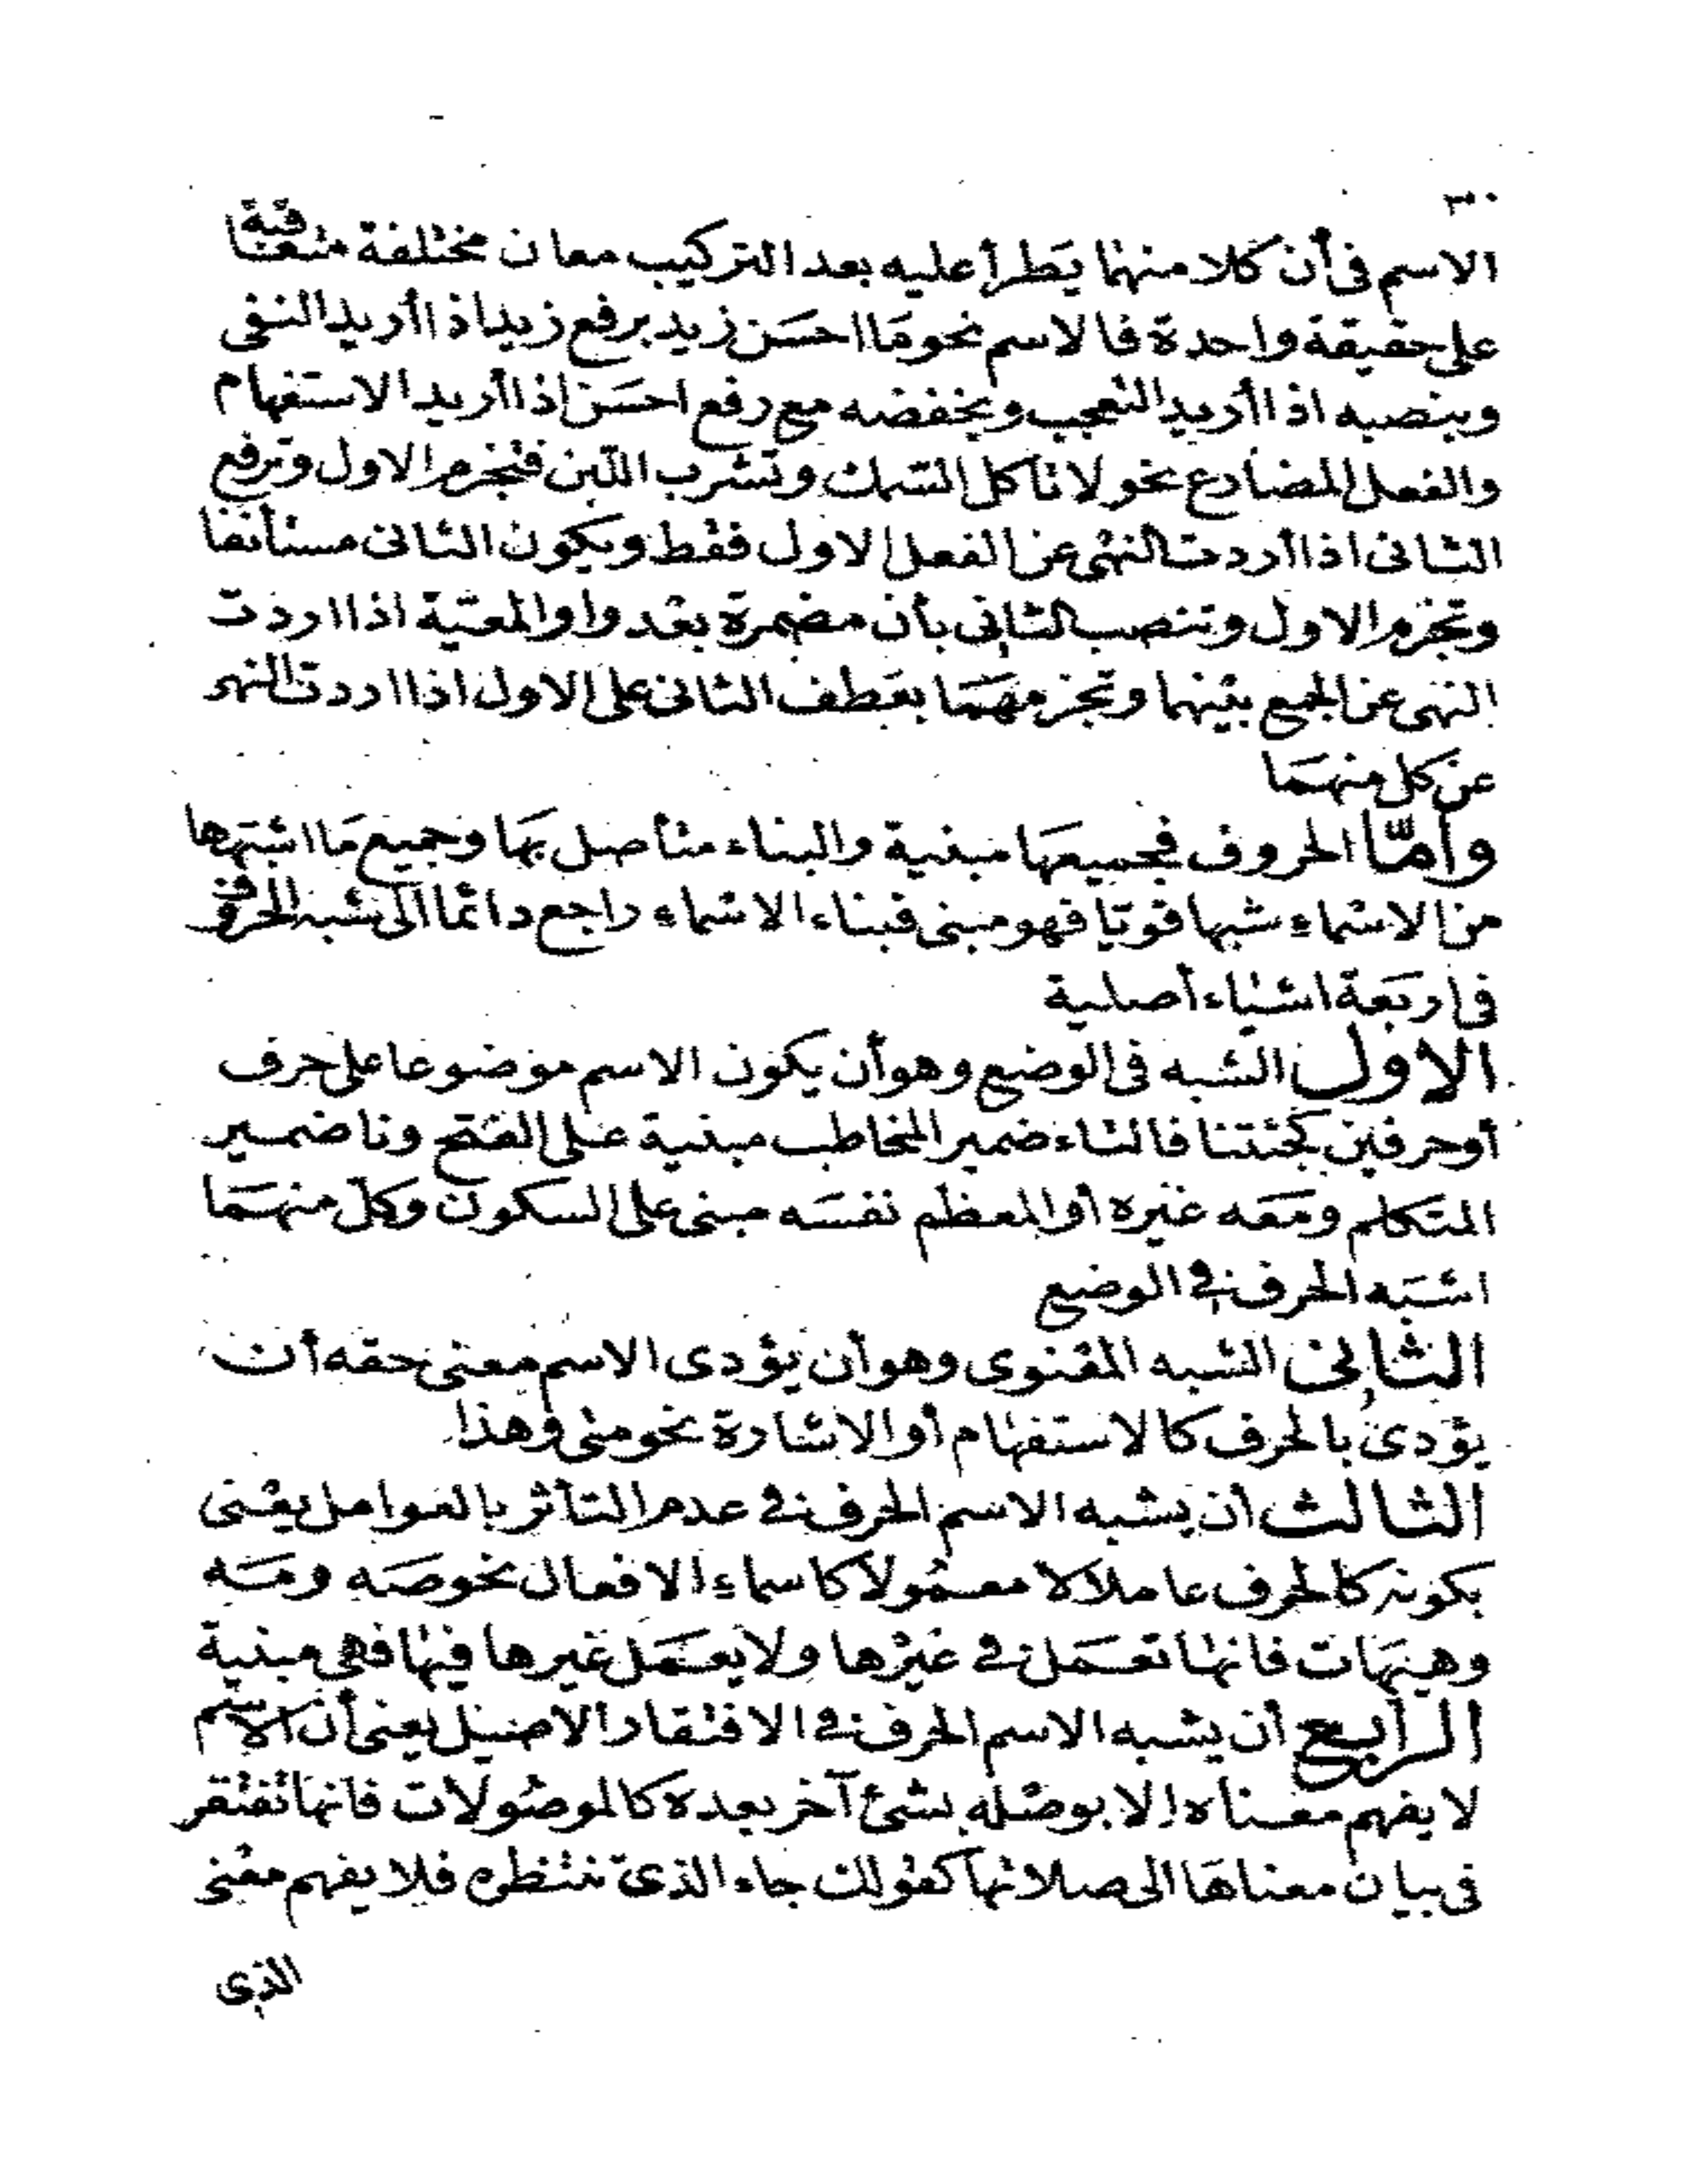 ٣٠
الاسم فى أن كلا منهما يَطرأ عليه بعد التركيب معان مختلفة متعاقبة
على حقيقة واحدة فالاسم نحو مَا احسَن زيد برفع زيد اذا أريد النفى
وبنصبه اذا أريد التعجب وبخفضه مع رفع احسَن اذا أريد الاستفهام
والفعل المضارع نحو لا تاكل السّمك وتشرب اللّبن فتجزم الاول وترفع
الثانى اذا أردت النهى عن الفعل الاول فقط ويكون الثانى مستأنفا
وتجزم الاول وتنصب الثانى بأن مضمرة بعْد واو المعيّة اذا اردت
النهى عن الجمع بينهما وتجزمهَمَا بعَطف الثانى على الاول اذا اردت النهى
عن كل منهمَا
وأمّا الحروف فجميعهَا مبنية والبناء متأصل بهَا وجميع مَا اشبهها
من الاسْماء شبها قويّا فهو مبنى فبناء الاسْماء راجع دائما الى شبه الحروف
فى اربَعَة اشيَاء أصلية
الاول الشبه فى الوضع وهو أن يكون الاسم موضوعا على حرف
أو حرفين كجئتنا فالتاء ضمير المخاطب مبنية على الفتح ونا ضمير
المتكلم ومَعَه غيره أو المعظم نفسَه مبنى على السكون وكلّ منهمَا
اشبَه الحرف فى الوضع
الثانى الشبه المعْنوى وهو أن يؤدى الاسم معنى حقه أن
يؤدىُ بالحرف كالاستفهام أو الاشارة نحو متى وهذا
الثالث أن يشبه الاسم الحرف فى عدم التأثر بالعوامل يعْنى
بكونه كالحرف عاملا لا معمُولا كاسماء الافعال نحو صَه ومَه
وهيهَات فانها تعمَل فى غيْرها ولا يعمَل غيرها فيها فهى مبنية
الرابع أن يشبه الاسم الحرف فى الافتقار الاصيل يعنى أن الاسم
لا يفهم معناه إلا بوصْله بشئ آخر بعده كالموصُولات فانها تفتقر
فى بيان معناهَا الى صلاتها كقولك جاء الذى تنتظره فلا يفهم معْنى
الذى